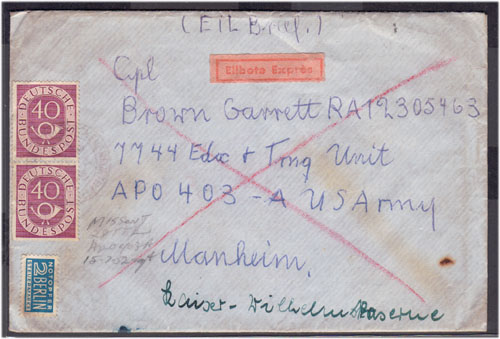 (Eil Brief.)
Eilbote Exprès
Cpl
Brown Garrett RA12305463
7744 Educ & Tnng Unit
APO 403 - A US Army
Manheim.
Kaiser-Wilhelm Kaserne
DEUTSCHE
40
BUNDESPOST
DEUTSCHE
40
BUNDESPOST
MISSENT
NOTOPFER
2 BERLIN